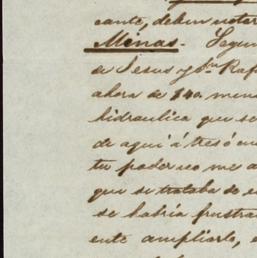 cante, deben notar
Minas. Segun
de Jesus y Sn Raf
ahora de 140. men
hidraulica que se
de aqui á tres ó cu
tu poder no me a
que se trataba de e
se habria frustra
ente ampliarlo, e